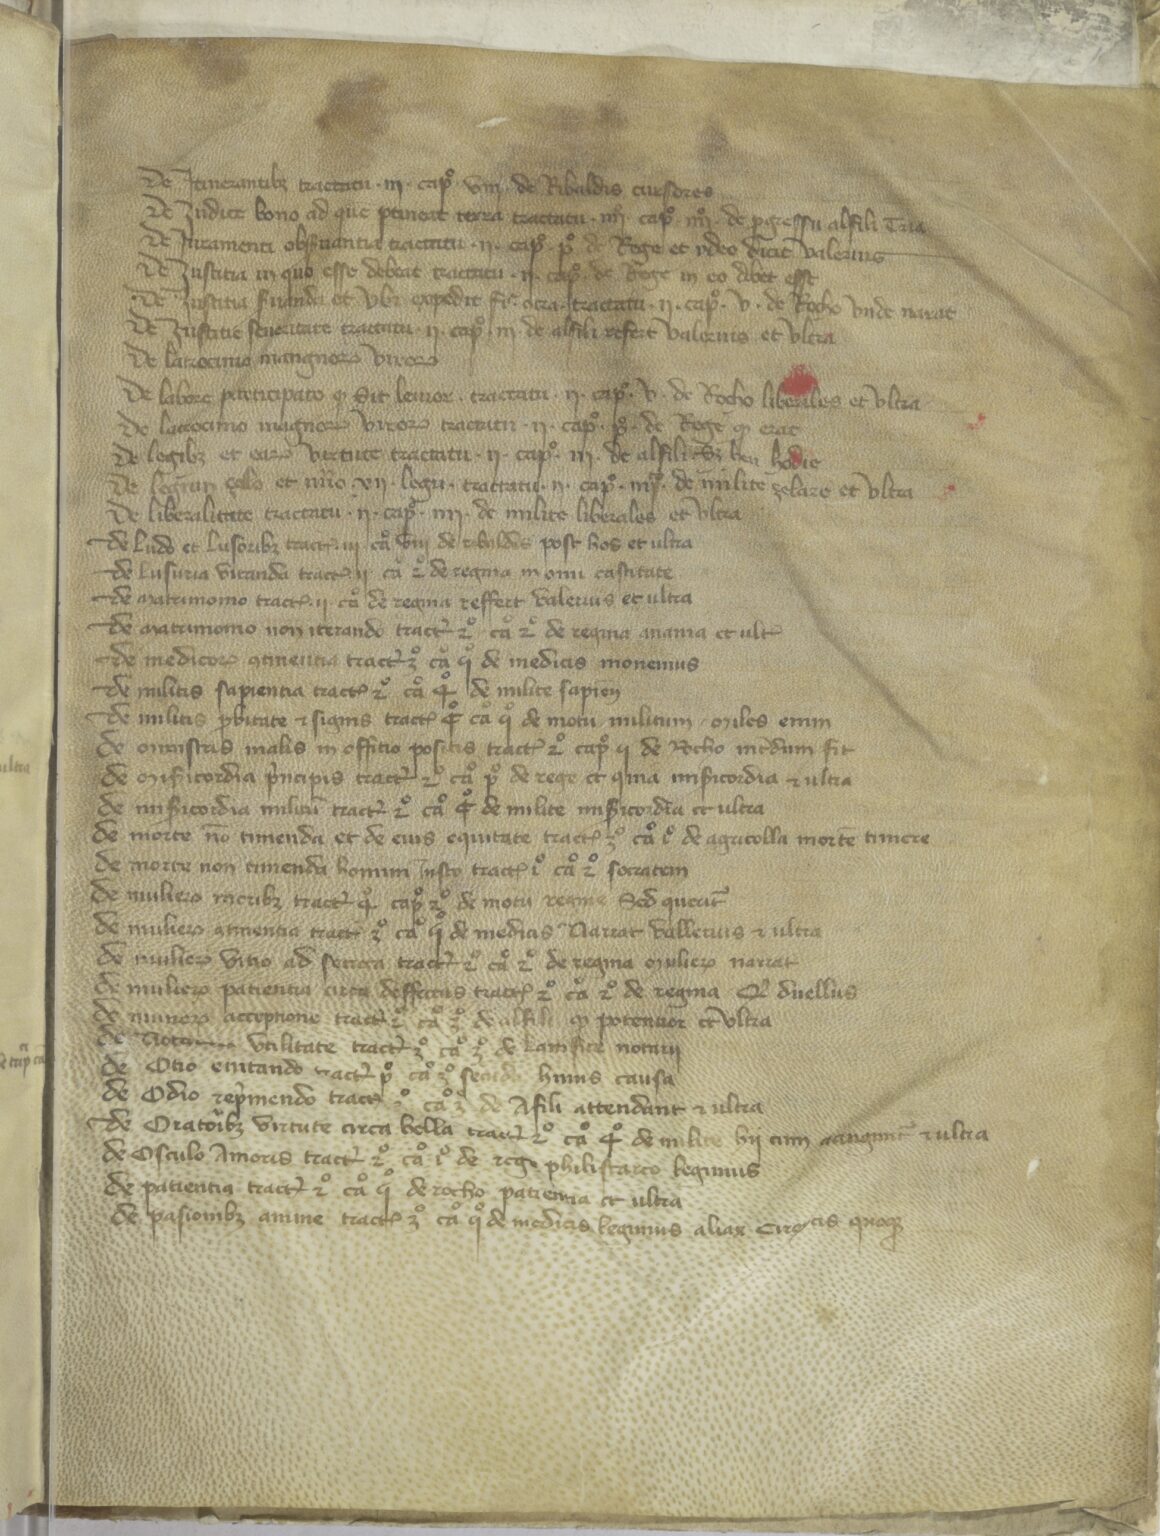 De Itinerantibꝫ tractatu · iii · capº · viii · de Ribaldis cursores
De Iudice bono ad que ptineat terra tractatu · iiiiº · capº · iiiiº · de pgressu alfili Tria
De Iuramenti obseruantia tractatu · ii · capº · pº de Rege et ideo dicit Valerius
De Iustitia in quo esse debeat tractatu · ii · capº · de Rege in eo debet esse
De Iustitia seruanda et Vbi expedit tractatu · ii · capº · v · de Rocho Vnde narat
De Iustitie seueritate tractatu · ii · capº · iii · de alfili refert Valerius et Vltra
De latrocinio mangnoꝝ Viroꝝ
De labore pticipato ꝙ Sit leuior · tractatu · ii · capº · v · de Rocho liberales et Vltra
De latrocinio magnoꝝ Viroꝝ tractatu · ii · capº · pº · de Rege ꝙ erat
De legibꝫ et eaꝝ Virtute tractatu · ii · capº · iii · de alfili Sꝫ heu hodie
De legum zello et nūo xii · legū · tractatu · ii · capº · iiiiº · de milite zelare et Vltra
De liberalitate tractatu · ii · capº · iiii · de milite liberales et Vltra
de Ludo et Lusoribꝫ tract iii caº viii de ribaldis post hos et ultra
de Lusuria vitanda tract ii caº 2º de regina in omni castitate
de Matrimonio tract ii caº de regina reffert Valerius et ultra
de Matrimonio non iterando tract 2º caº 2º de regina anania et ult
de medicoꝝ ꝯtinentia tract 3º caº qº de medicis monemus
de militis sapientia tract 2º caº 4º de milite sapien
de militis pbitate et signis tract 4º caº qº de motu militum / Miles enim
de ministris malis in offitio positis tract 2º capº q de Rocho interdum fit
de Misericordia principis tract 2º caº pº de rege et quia misericordia et ultra
de misericordia militū tract 2º caº 4º de milite misericordia et ultra
de morte nō timenda et de eius equitate tract 3º caº iº de agricolla mortē timere
de morte non timenda homini Iusto tract iº caº 2º socratem
de mulieꝝ moribꝫ tract 4º capº 2º de motu regine Sed querit
de mulieꝝ ꝯtinentia tract 3º caº qº de medicis Narrat Vallerius et ultra
de mulieꝝ Vitio ad secreta tract 2º caº 2º de regina Mulieꝝ narrat
de mulieꝝ patientia circa deffectus tract 2º caº 2º de regina Qd duellus
de muneꝝ acceptione tract 2º caº 3º de alfili ꝙ potentior et Vltra
de Vtilitate tract 3º caº 3º de Lanifice notarii
de Otio euitando tract pº caº 3º secunda huius causa
de Odio reprimendo tract 2º caº 3º de Afili attendant et ultra
de Oratoribꝫ Virtute circa bella tract 2º caº 4º de milite hii cum et ultra
de Osculo Amoris tract 2º caº iº de rege philistarco legimus
de patientia tract 2º caº qº de rocho patientia et ultra
de pasionibꝫ anime tract 3º caº qº de medicis legimus alias quoqꝫ